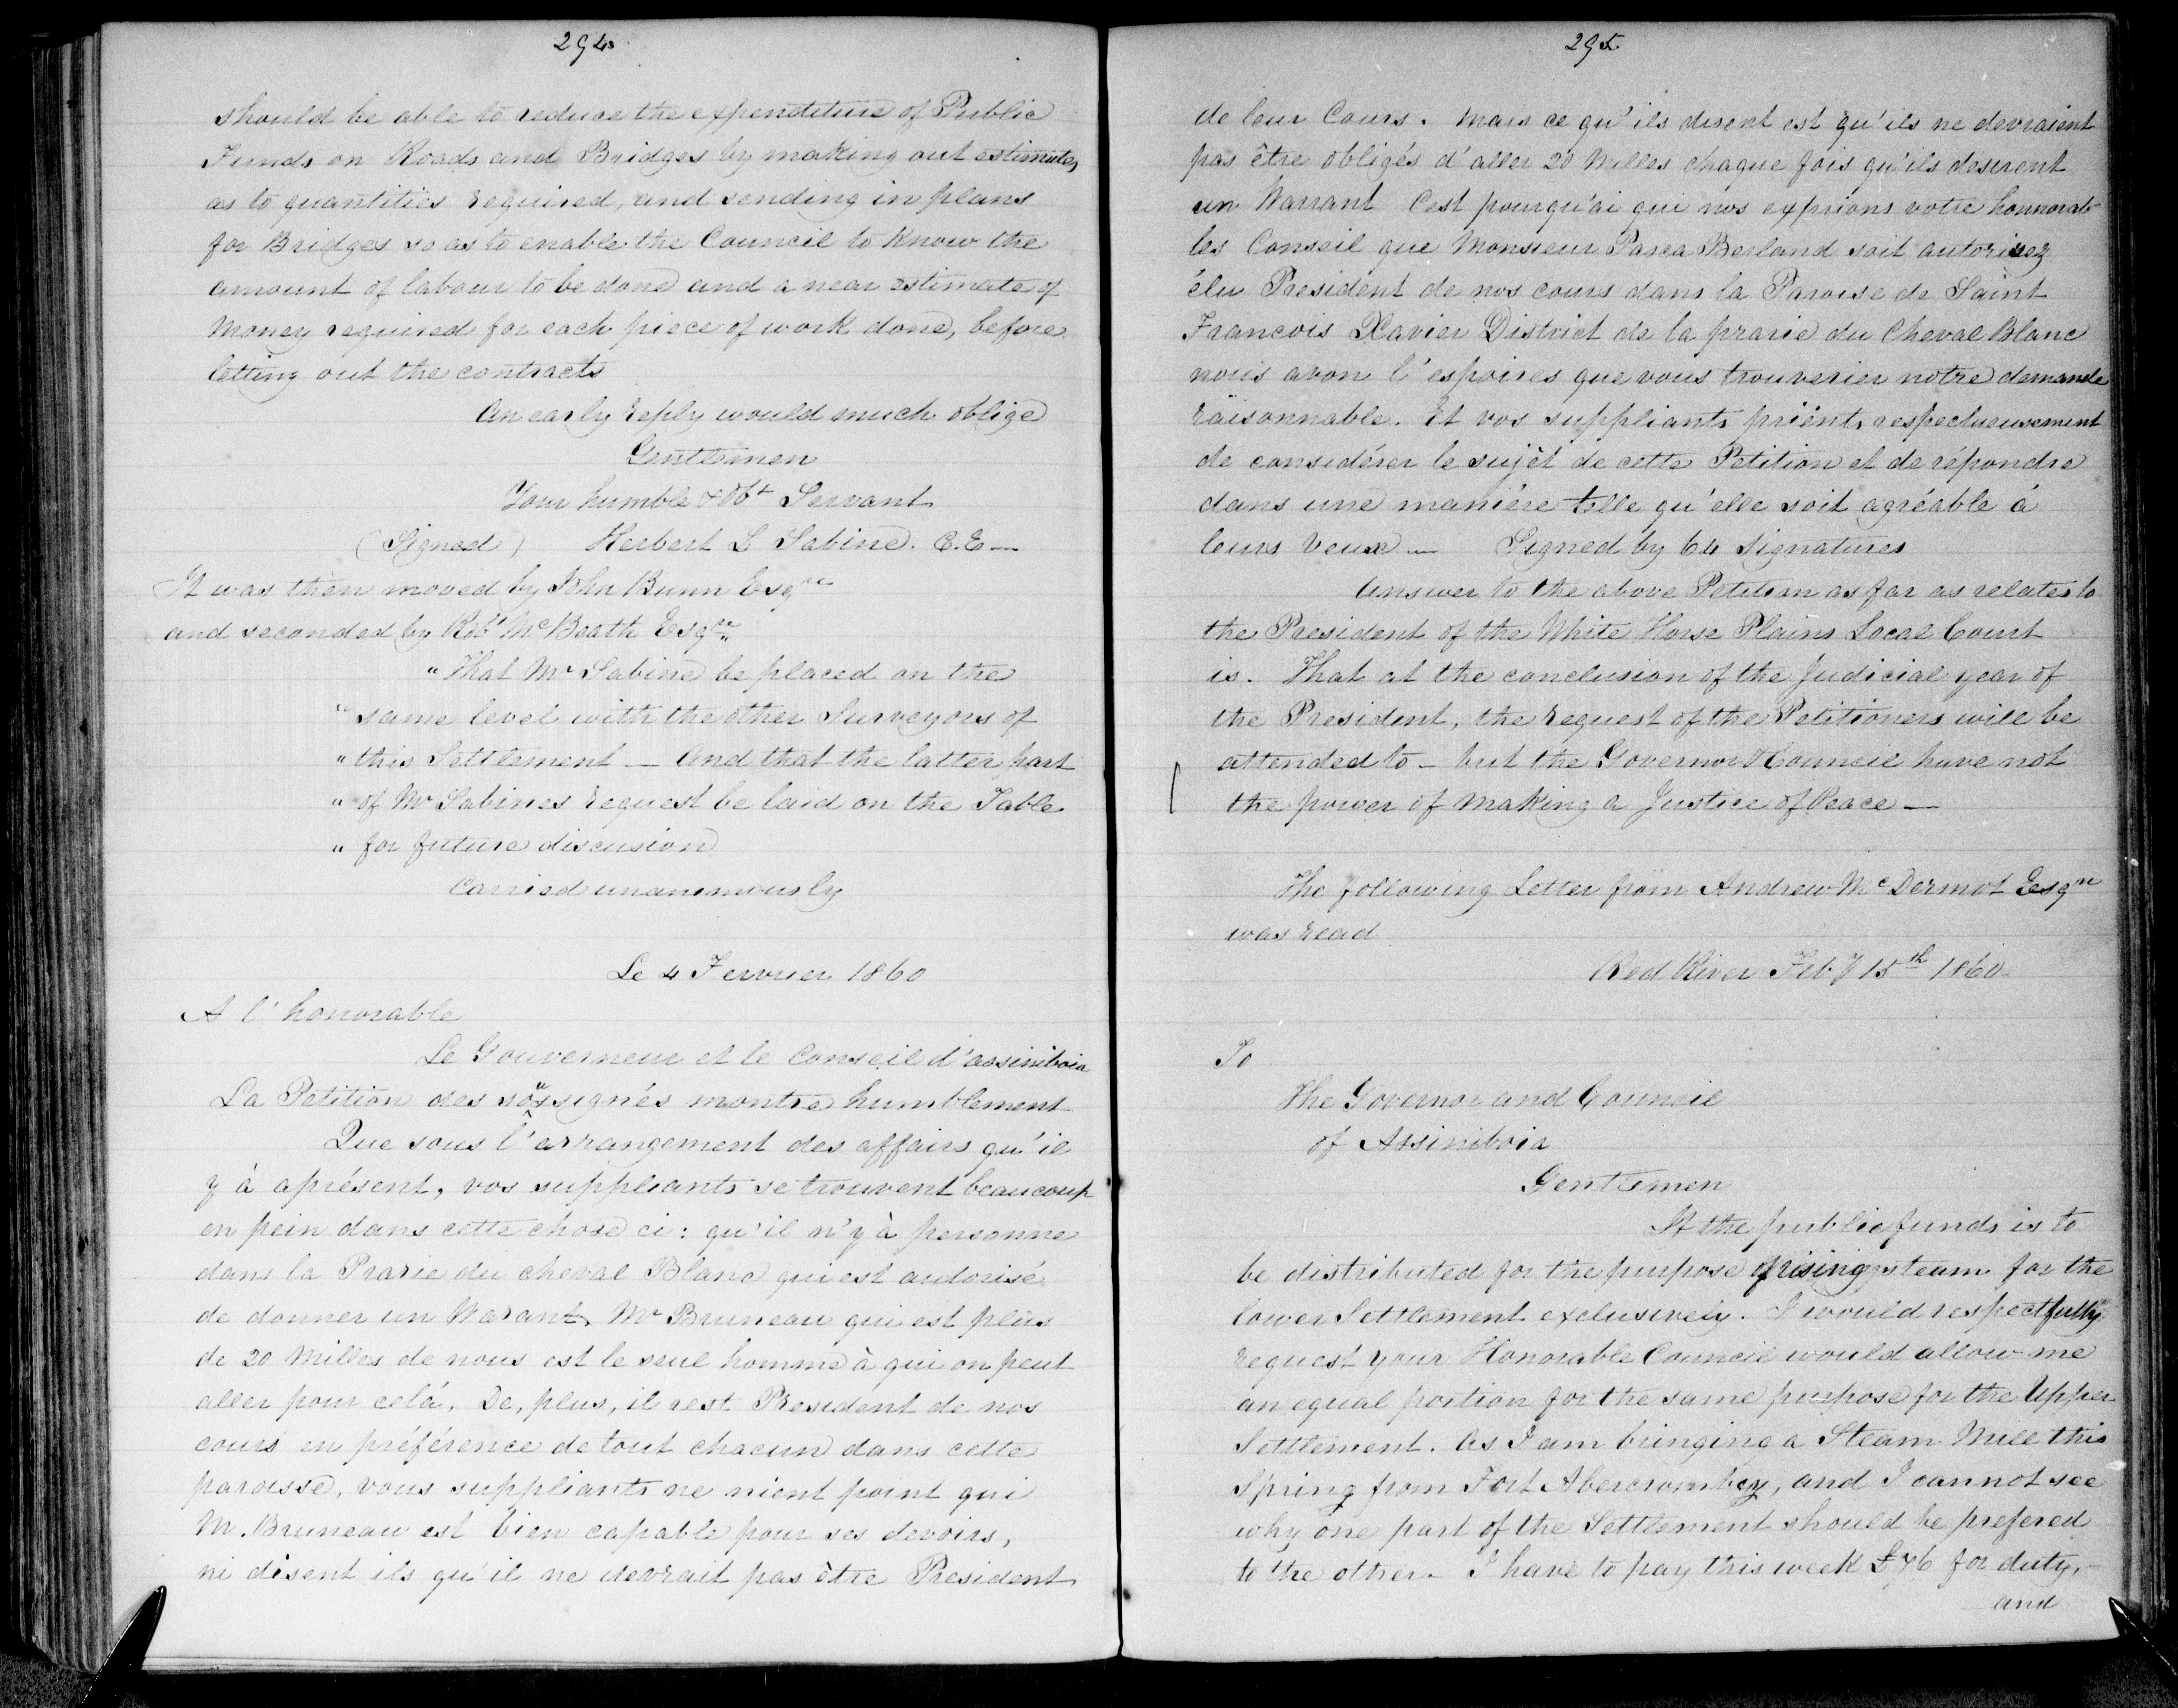 294
should be able to reduce the expenditure of Public
Funds on Roads and Bridges by making out estimates
as to quantities required, and sending in plans
for Bridges so as to enable the Council to know the
amount of labour to be done and a near estimate of
money required for each piece of work done, before
letting out the contracts
An early reply would much oblige
Gentlemen
Your humble & Obt Servant
(Signed) Herbert L Sabine. C.E —
It was then moved by John Bunn Esqre
and seconded by Robt McBeath Esqre
"That Mr Sabine be placed on the
"same level with the other Surveyors of
"this Settlement — And that the latter part
"of Mr Sabines request be laid on the Table
"for future discusion
Carried unanimously
Le 4 Fevrier 1860
A l'honorable
Le Gouverneur et le Conseil d'assiniboia
La Petition des soussignés montre humblement
Que sous l'arrangement des affairs qu'il
y à aprésent, vos suppliants se trouvent beaucoup
en pein dans cette chose ci: qu'il n'y à personne
dans la Prarie du cheval Blanc qui est autorisé
de donner un Warant, Mr Bruneau qui est plus
de 20 Milles de nous est le seul homme à qui on peut
aller pour celà. De, plus, il est President de nos
cours en préférence de tout chacun dans cette
paroisse, vous suppliants ne nient point qui
M. Bruneau est bien capable pour ses devoirs,
ni disent ils qu'il ne devrait pas être President
295
de leur Cours. Mais ce qu'ils disent est qu'ils ne devraient
pas être obligés d'aller 20 Milles chaque fois qu'ils desirent
un Warrant C'est pourqu'ai qui nos exprions votre honnorab
les Conseil que Monsieur Pasca Berland soit autorisez
élu President de nos cours dans la Paroise de Saint
Francois Xavier District de la prarie du Cheval Blanc
nous avon l'espoires que vous trouverier notre demande
raisonnable. Et vos suppliants priént respectueusement
de considérer le sujèt de cette Petition et de répondre
dans une maniére telle qu'elle soit agréable à
leurs veux — Signed by 64 signatures
Answer to the above Petition as far as relates to
the President of the White Horse Plains Local Court
is. That at the conclusion of the Judicial year of
the President, the request of the Petitioners will be
attended to — but the Governor & Council have not
the power of making a Justice of Peace —
The following Letter from Andrew McDermot Esqre
was read
Red River Feby 15th 1860
To
The Governor and Council
of Assiniboia
Gentlemen
If the public funds is to
be distributed for the purpose of rising steam for the
lower Settlement exclusively. I would respectfully
request your Honorable Council would allow me
an equal portion for the same purpose for the Upper
Settlement. As I am bringing a Steam Mill this
Spring from Fort Abercromby, and I cannot see
why one part of the Settlement should be prefered
to the other. I have to pay this week £76 for duty,
and